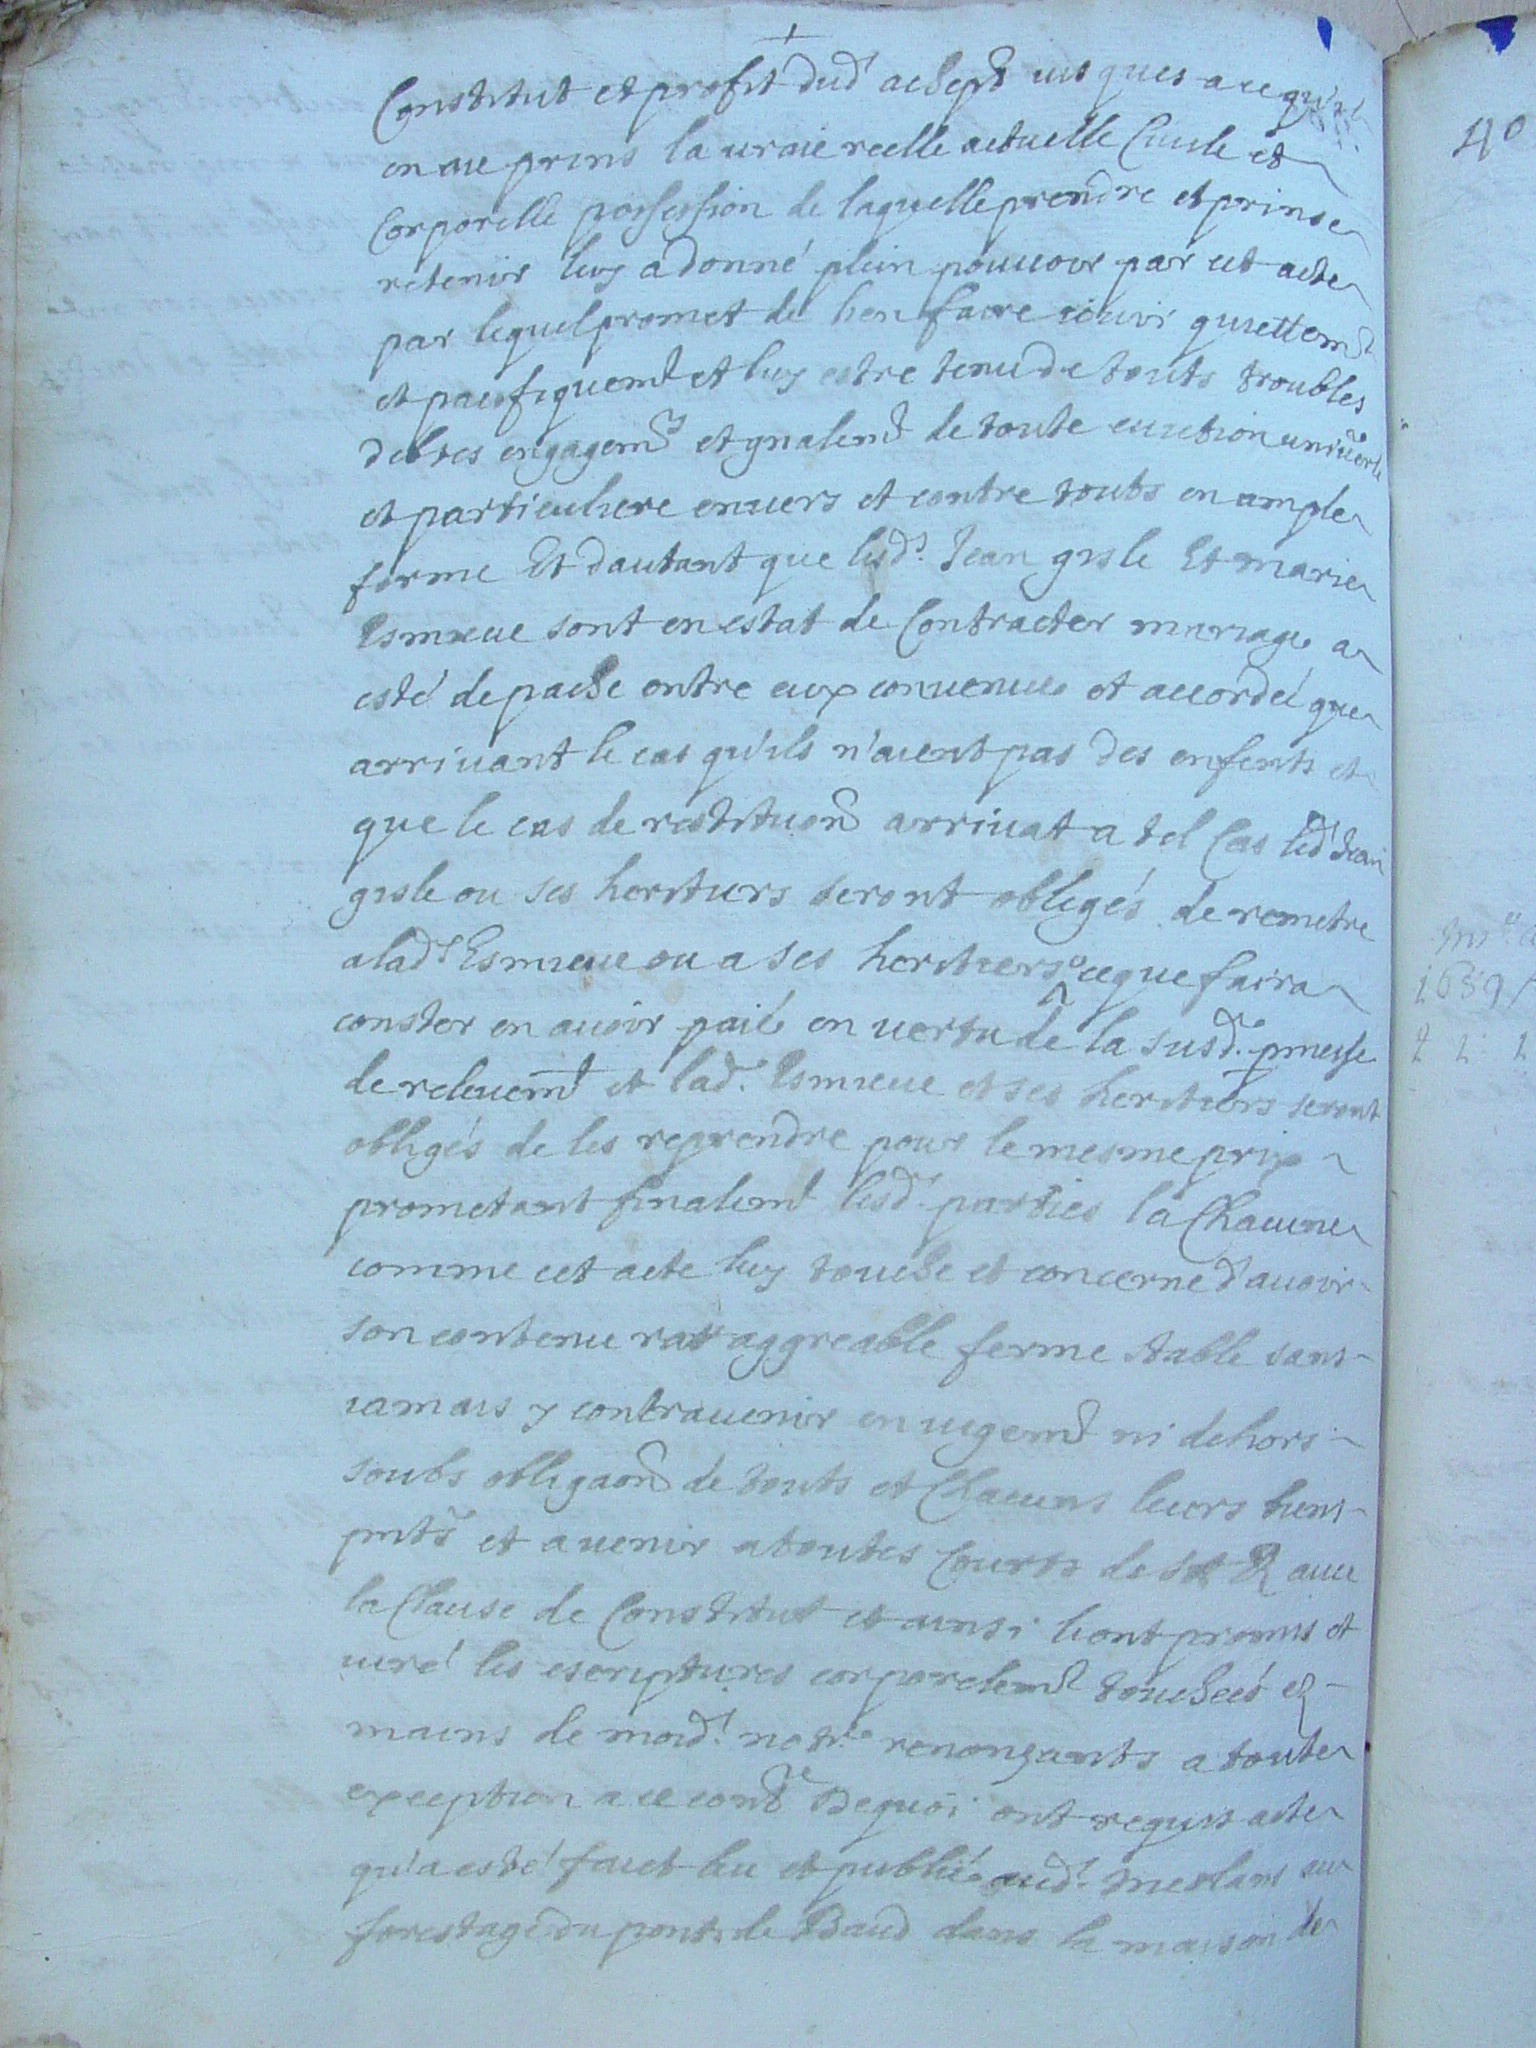 Constitut et profit dud' achept.r ius ques a ce qu'il
en aie prins la uraie reelle actuelle Ciuile et
Corporelle possession de laquelle prendre et prinse
retenir luy a donné plein pouuoir par cet acte
par lequel promet de l'en faire iouir quiettem.t
et pacifiquem.t et luy estre tenu de touts troubles
debtes engagem.ts et gnalem.t de toute euiction uniuerle
et particuliere enuers et contre touts en ample
forme Et dautant que lesd.s Jean gisle Et marie
Esmieue sont en estat de Contracter mariage a
esté de pache entre eux conuenue et accordéé que
arriuant le cas qu'ils n'aient pas des enfents et
que le cas de restituon arriuat a tel Cas led.t Jean
gisle ou ses heritiers seront obligés de remetre
a lad.e Esmieue ou a ses heritiers ce que faira
conster en auoir paié en uertu de la susd.e pmesse
de releuem.t et lad.e Esmieue et ses heritiers seront
obligés de les reprendre pour le mesme prix
prometant finalem.t lesd.s parties la Chacune
comme cet acte luy touche et concerne d'auoir
son contenu rat aggreable ferme stable sans
iamais y contrauenir en iugem.t ni dehors
soubs obligaon de touts et Chacuns leurs biens
pnts et auenir a toutes Courts de st & auec
la Clause de Constitut et ainsi l'ont promis et
iuré les escriptures corporelem.t touchéés ez
mains de moid.t not.re renonçants a toute
exception a ce cont.re Dequoi ont requis acte
qu'a esté faict leu et publié aud.t meolans au
forestage du pont de Baud dans la maison de
40
1659